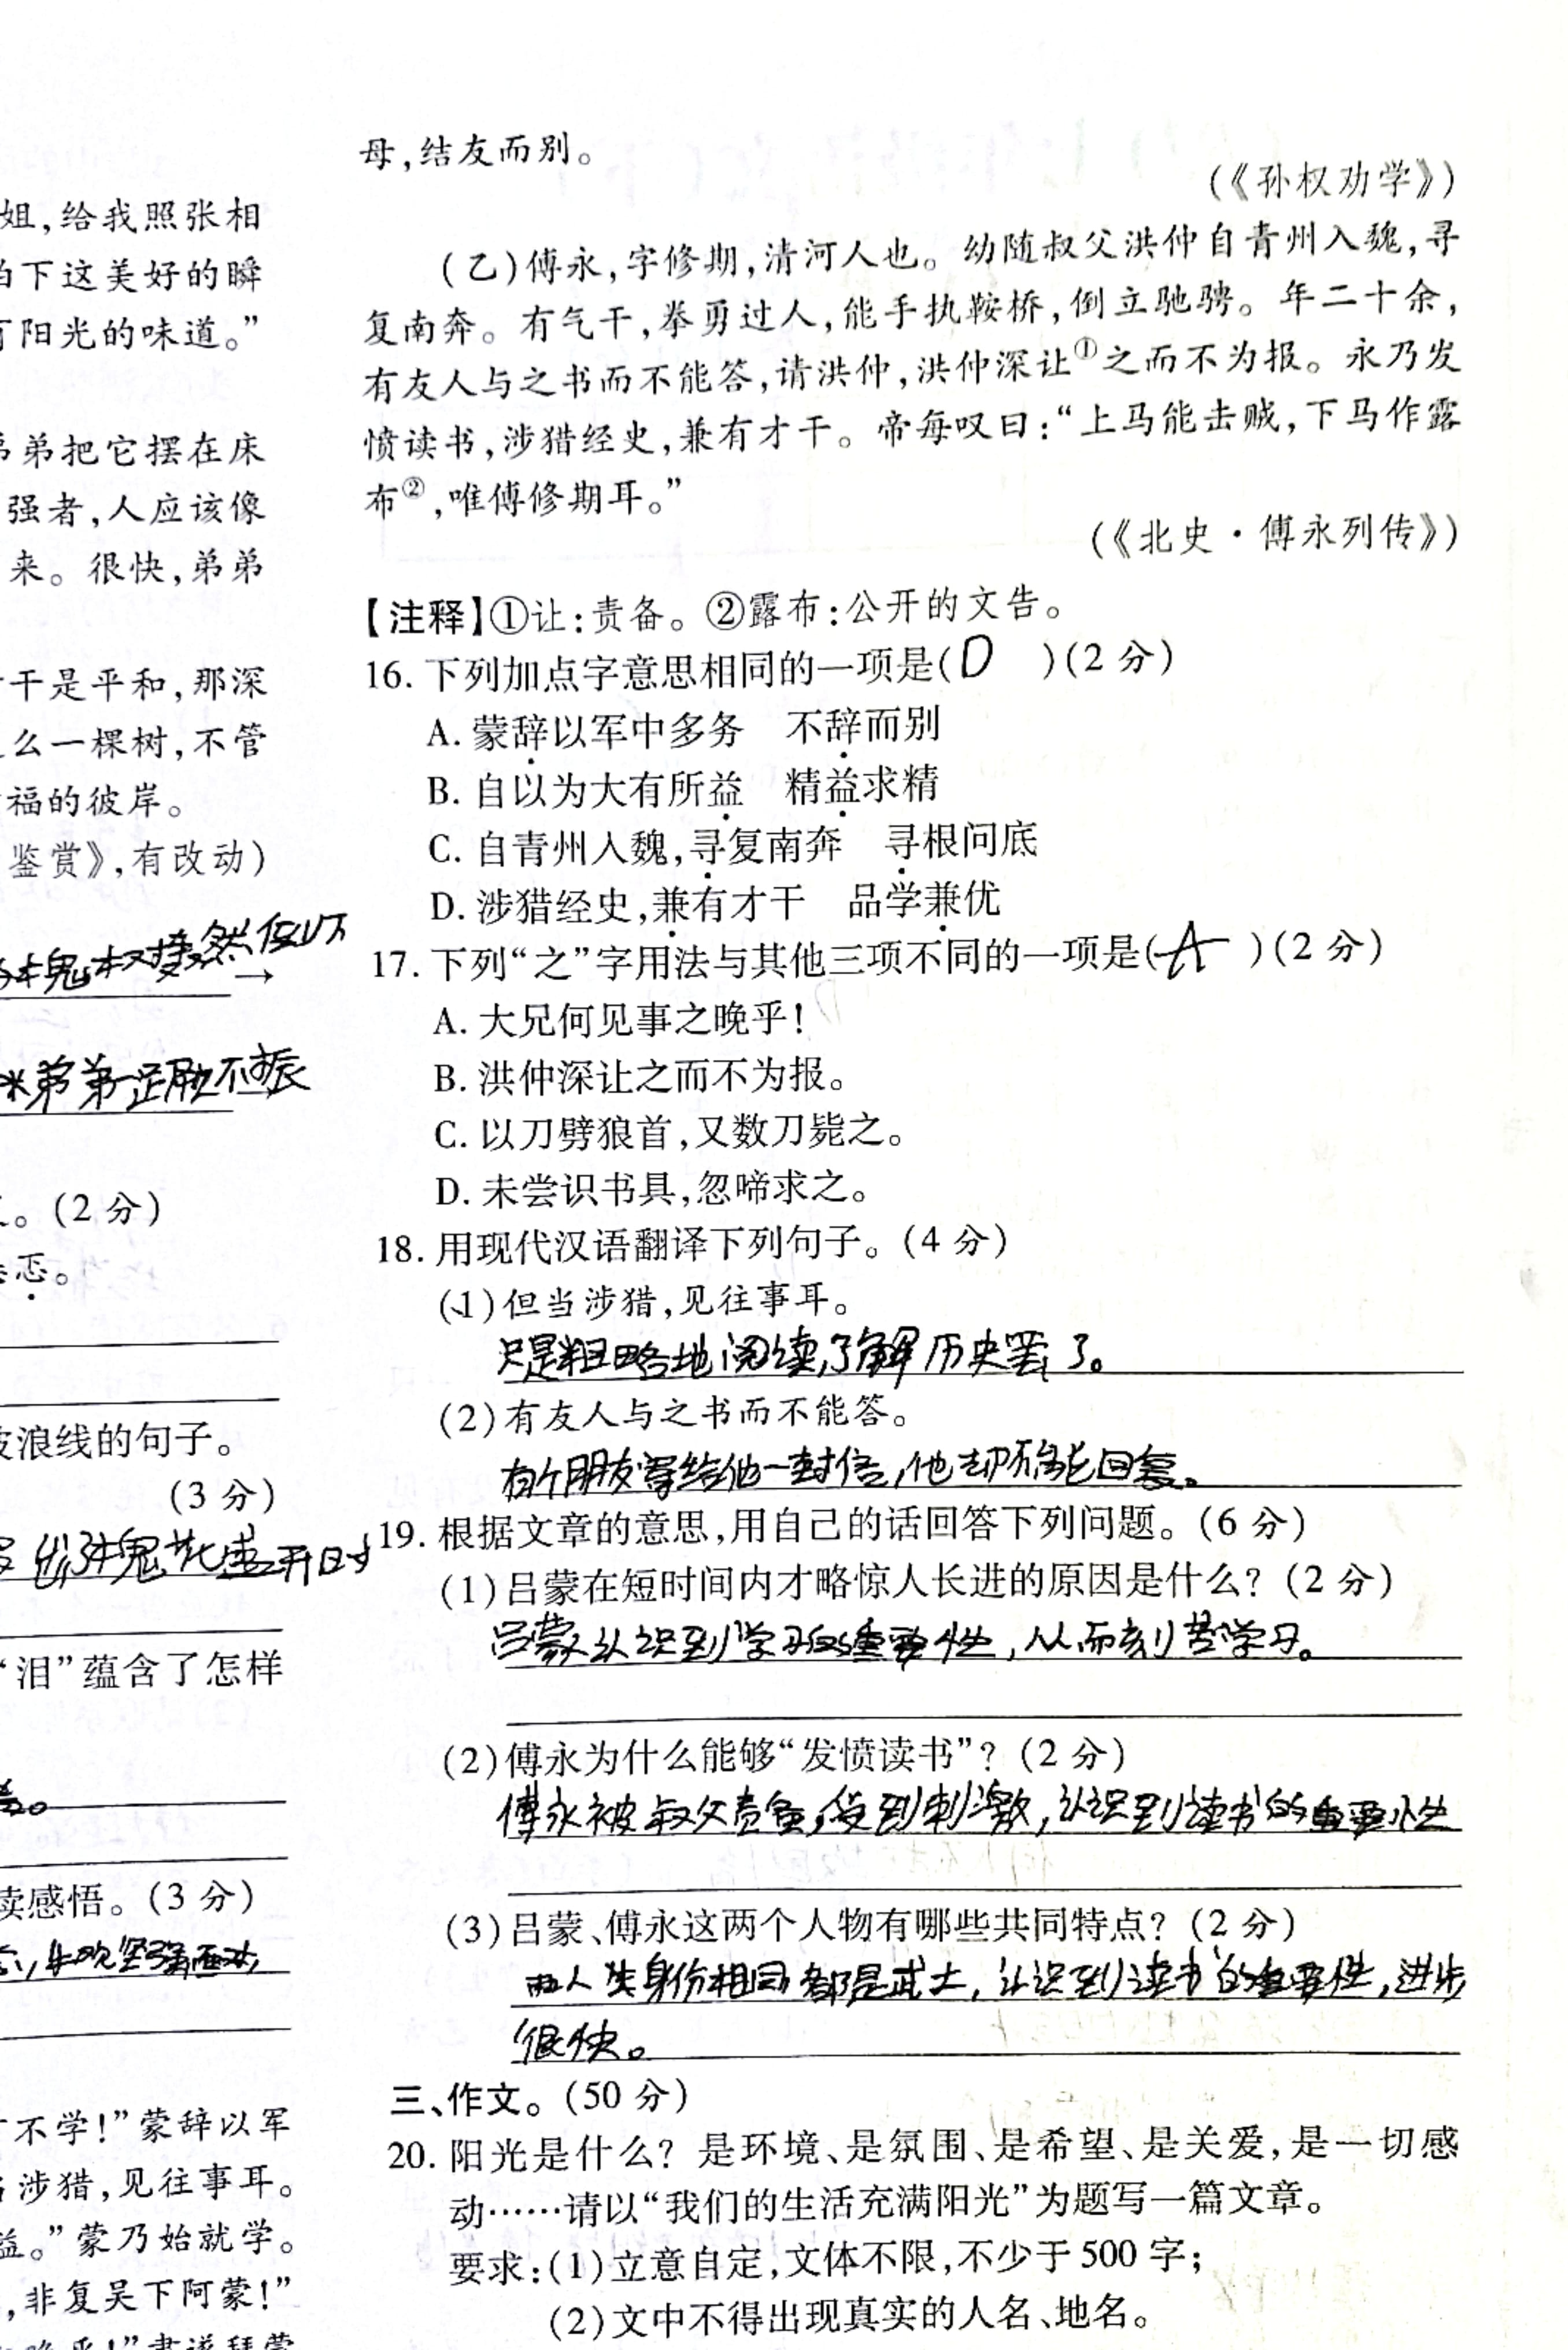 姐,给我照张相
下这美好的瞬
阳光的味道。”
弟把它摆在床
强者,人应该像
来。很快,弟弟
干是平和,那深
么一棵树,不管
福的彼岸。
鉴赏》,有改动)
弟弟一定不振
。(2分)
恧。
浪线的句子。
(3分)
花盛开时
“泪”蕴含了怎样
读感悟。(3分)
乐观坚强面对,
不学!”蒙辞以军
涉猎,见往事耳。
益。”蒙乃始就学。
,非复吴下阿蒙!”
母,结友而别。
(《孙权劝学》)
(乙)傅永,字修期,清河人也。幼随叔父洪仲自青州入魏,寻
复南奔。有气干,拳勇过人,能手执鞍桥,倒立驰骋。年二十余,
有友人与之书而不能答,请洪仲,洪仲深让①之而不为报。永乃发
愤读书,涉猎经史,兼有才干。帝每叹曰:“上马能击贼,下马作露
布②,唯傅修期耳。”
(《北史·傅永列传》)
【注释】①让:责备。②露布:公开的文告。
16. 下列加点字意思相同的一项是(D)(2分)
A. 蒙辞以军中多务 不辞而别
B. 自以为大有所益 精益求精
C. 自青州入魏,寻复南奔 寻根问底
D. 涉猎经史,兼有才干 品学兼优
17. 下列“之”字用法与其他三项不同的一项是(A)(2分)
A. 大兄何见事之晚乎!
B. 洪仲深让之而不为报。
C. 以刀劈狼首,又数刀毙之。
D. 未尝识书具,忽啼求之。
18. 用现代汉语翻译下列句子。(4分)
(1)但当涉猎,见往事耳。
只是粗略地阅读,了解历史罢了。
(2)有友人与之书而不能答。
有个朋友写给他一封信,他却不能回复。
19. 根据文章的意思,用自己的话回答下列问题。(6分)
(1)吕蒙在短时间内才略惊人长进的原因是什么?(2分)
吕蒙认识到学习的重要性,从而刻苦学习。
(2)傅永为什么能够“发愤读书”?(2分)
傅永被叔父责备,受到刺激,认识到读书的重要性
(3)吕蒙、傅永这两个人物有哪些共同特点?(2分)
两人身份相同都是武士,认识到读书的重要性,进步
很快。
三、作文。(50分)
20. 阳光是什么?是环境、是氛围、是希望、是关爱,是一切感
动……请以“我们的生活充满阳光”为题写一篇文章。
要求:(1)立意自定,文体不限,不少于500字;
(2)文中不得出现真实的人名、地名。